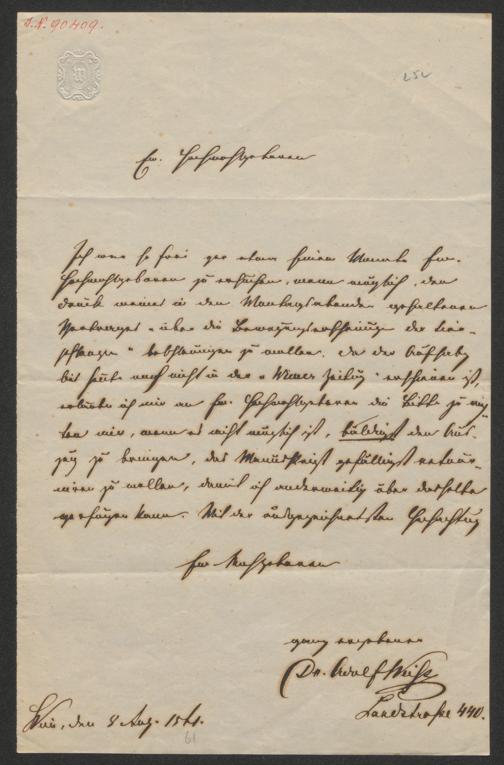 I.N. 90409.
252
Ew. Hochwohlgeboren
Ich war so frei vor etwa einem Monate Ew.
Hochwohlgeboren zu ersuchen, wenn möglich, den
Druck meines in den Montagsabenden gehaltenen
Vortrages "über die Bewegungserscheinungen der
pflanzen" zu wollen. Da der Aufsatz
bis heute noch nicht in der "Wiener Zeitung" erschienen ist,
erlaube ich mir an Ew. Hochwohlgeboren die Bitte zu
ten mir, wenn es nicht möglich ist, baldigst den Aus-
zug zu bringen, das Manuskript gefälligst retour-
niren zu wollen, damit ich anderweitig über dasselbe
verfügen kann. Mit der ausgezeichnetsten Hochachtung
Ew. Wohlgeboren
ganz ergebener
Dr. Adolf Weiß
Landstraße 440.
Wien, den 8 Aug. 1861.
61